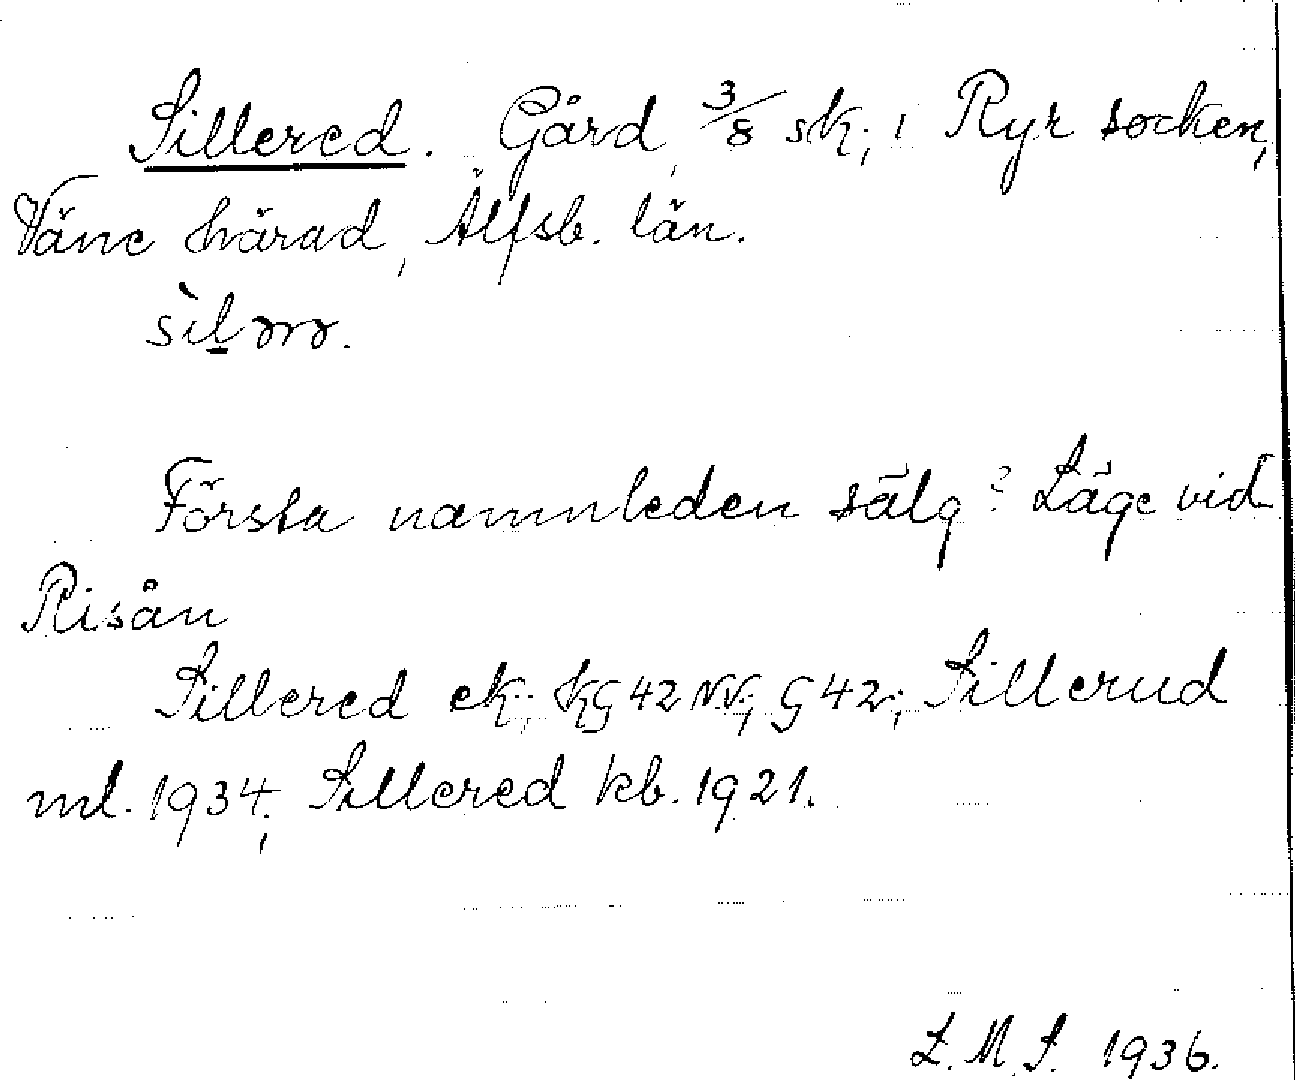 Sillered. Gård, 3/8 sk, i Ryr socken,
Väne härad, Älfsb. län.
Första namnleden sälg? Läge vid
Risån
Sillered ek; kg 42 NV; G 42; Sillerud
ml. 1934; Sillered kb. 1921.
L.M.S. 1936.